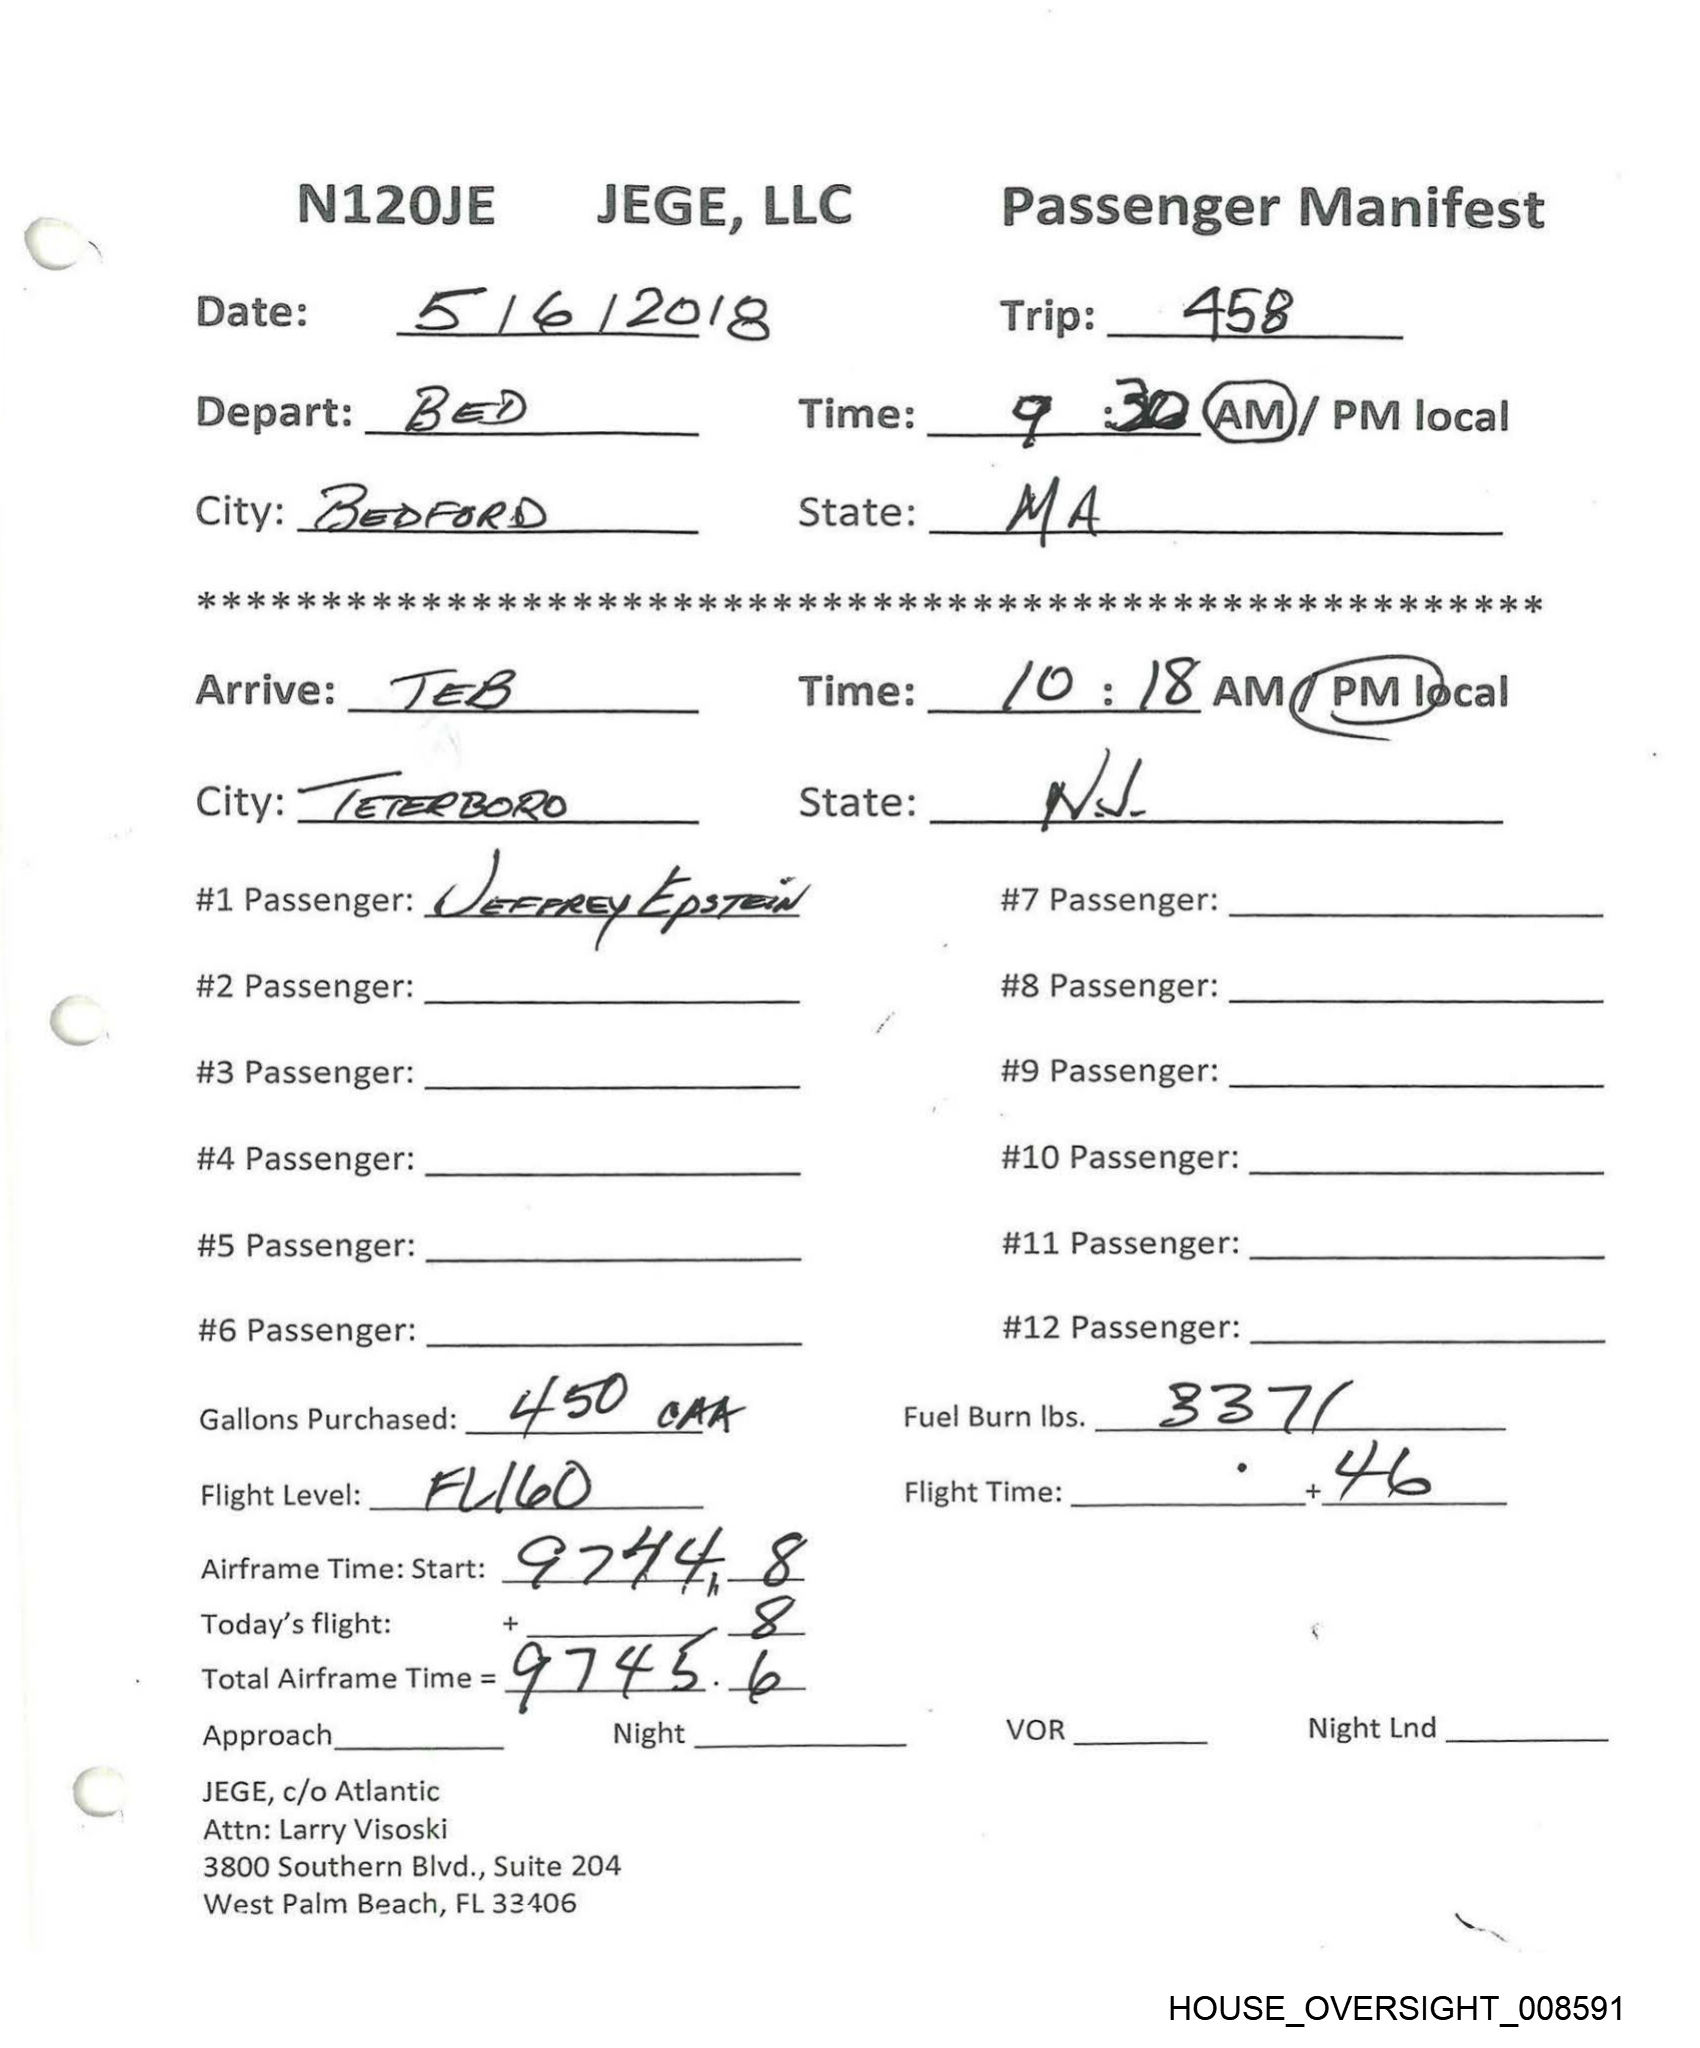 N120JE JEGE, LLC Passenger Manifest
Date: 5/6/2018 Trip: 458
Depart: BED Time: 9:30 AM / PM local
City: BEDFORD State: MA
******************************************************
Arrive: TEB Time: 10:18 AM / PM local
City: TETERBORO State: N.J.
#1 Passenger: JEFFREY EPSTEIN #7 Passenger:
#2 Passenger: #8 Passenger:
#3 Passenger: #9 Passenger:
#4 Passenger: #10 Passenger:
#5 Passenger: #11 Passenger:
#6 Passenger: #12 Passenger:
Gallons Purchased: 450 CAA Fuel Burn lbs. 3371
Flight Level: FL160 Flight Time: + 46
Airframe Time: Start: 9744.8
Today's flight: + .8
Total Airframe Time = 9745.6
Approach Night VOR Night Lnd
JEGE, c/o Atlantic
Attn: Larry Visoski
3800 Southern Blvd., Suite 204
West Palm Beach, FL 33406
HOUSE_OVERSIGHT_008591